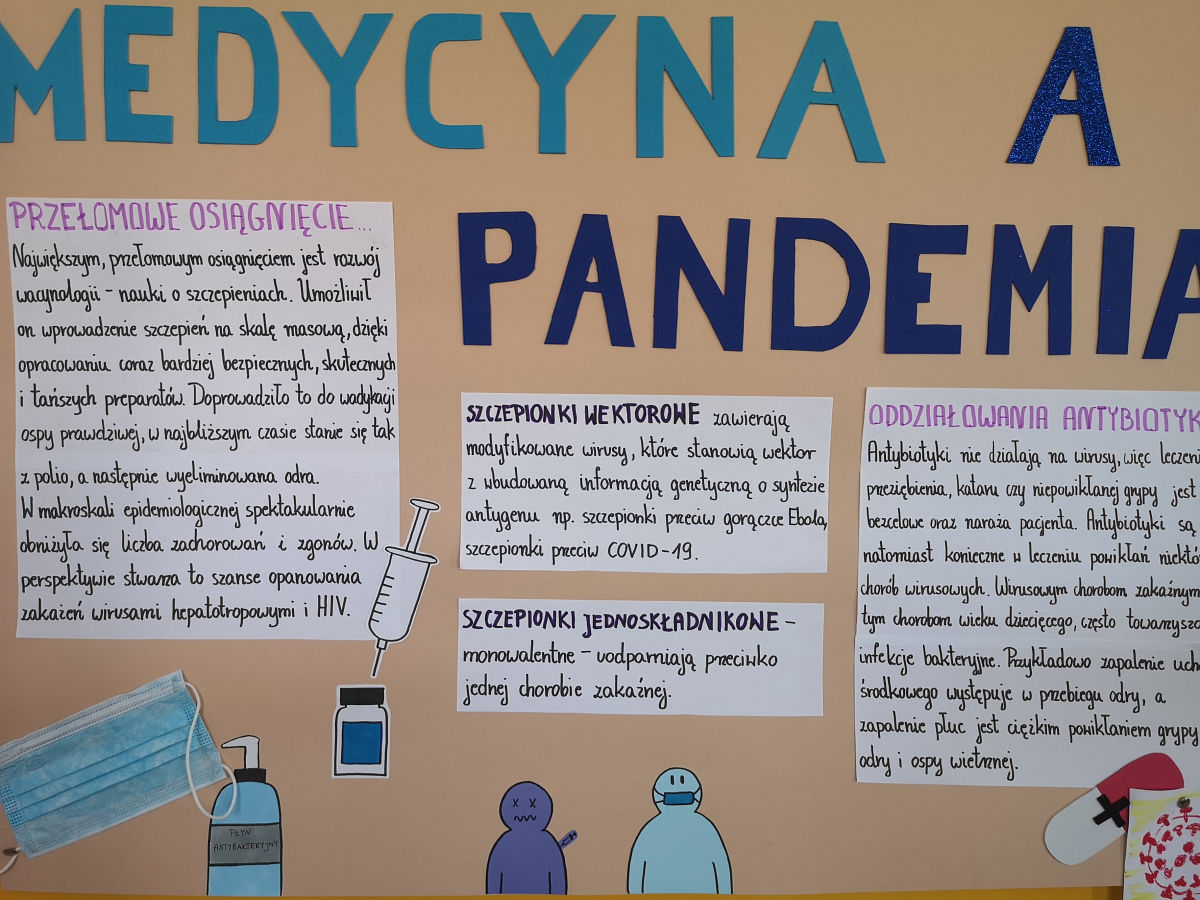 MEDYCYNA A
PANDEMIA
PRZEŁOMOWE OSIĄGNIĘCIE...
Największym, przełomowym osiągnięciem jest rozwój
wacynologii - nauki o szczepieniach. Umożliwił
on wprowadzenie szczepień na skalę masową, dzięki
opracowaniu coraz bardziej bezpiecznych, skutecznych
i tańszych preparatów. Doprowadziło to do wadykacji
ospy prawdziwej, w najbliższym czasie stanie się tak
z polio, a następnie wyeliminowana odra.
W makroskali epidemiologicznej spektakularnie
obniżyła się liczba zachorowań i zgonów. W
perspektywie stwarza to szanse opanowania
zakażeń wirusami hepatotropowymi i HIV.
SZCZEPIONKI WEKTOROWE zawierają
modyfikowane wirusy, które stanowią wektor
z wbudowaną informacją genetyczną o syntezie
antygenu np. szczepionki przeciw gorączce Ebola,
szczepionki przeciw COVID-19.
SZCZEPIONKI JEDNOSKŁADNIKOWE -
monowalentne - uodparniają przeciwko
jednej chorobie zakaźnej.
ODDZIAŁOWANIA ANTYBIOTYK
Antybiotyki nie działają na wirusy, więc leczeni
przeziębienia, kataru czy niepowikłanej grypy jest
bezcelowe oraz naraża pacjenta. Antybiotyki są
natomiast konieczne w leczeniu powikłań niektó
chorób wirusowych. Wirusowym chorobom zakaźnym
tym chorobom wieku dziecięcego, często towarzyszą
infekcje bakteryjne. Przykładowo zapalenie ucha
środkowego występuje w przebiegu odry, a
zapalenie płuc jest ciężkim powikłaniem grypy
odry i ospy wietrznej.
PŁYN
ANTYBAKTERYJNY